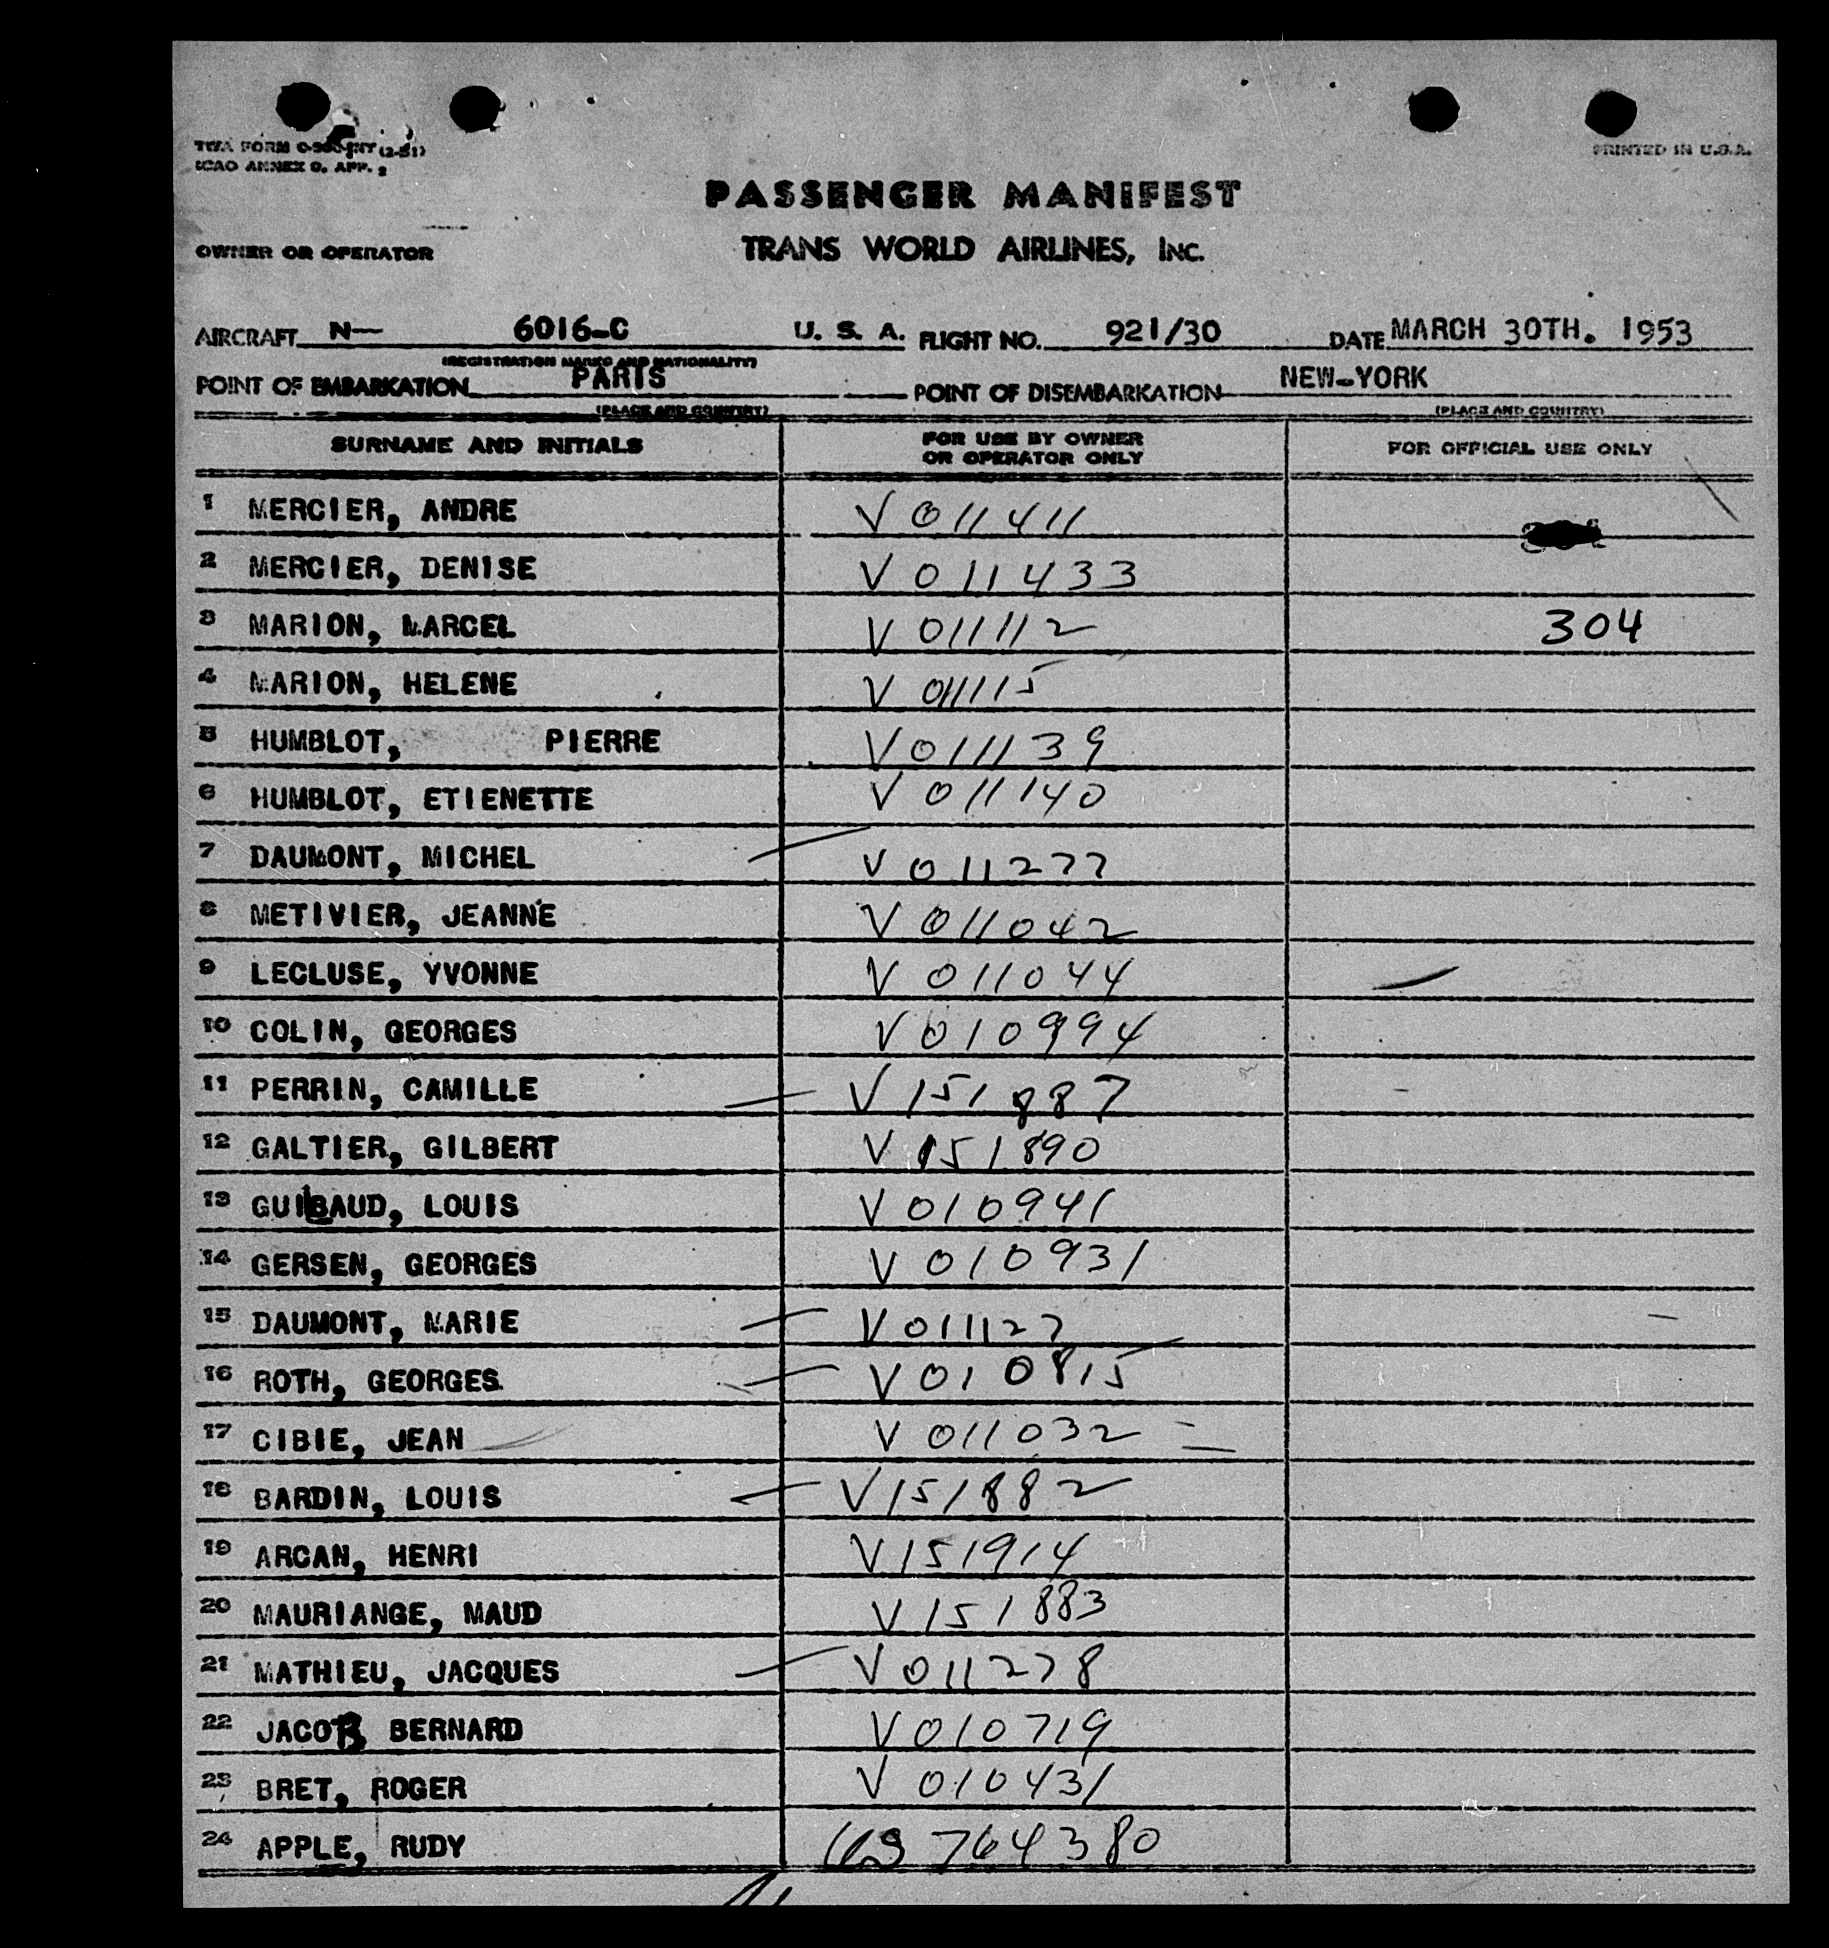 TWA FORM (2-51)
ICAO ANNEX 9. APP. 2
PRINTED IN U.S.A.
PASSENGER MANIFEST
OWNER OR OPERATOR
TRANS WORLD AIRLINES, INC.
AIRCRAFT N— 6016-C U. S. A. FLIGHT NO. 921/30 DATE MARCH 30TH. 1953
(REGISTRATION MARKS AND NATIONALITY)
POINT OF EMBARKATION PARIS POINT OF DISEMBARKATION NEW-YORK
(PLACE AND COUNTRY) (PLACE AND COUNTRY)
SURNAME AND INITIALS FOR USE BY OWNER OR OPERATOR ONLY FOR OFFICIAL USE ONLY
1 MERCIER, ANDRE V 011411
2 MERCIER, DENISE V 011433
3 MARION, MARCEL V 011112 304
4 MARION, HELENE V 011115
5 HUMBLOT, PIERRE V 011139
6 HUMBLOT, ETIENETTE V 011140
7 DAUMONT, MICHEL V 011277
8 METIVIER, JEANNE V 011042
9 LECLUSE, YVONNE V 011044
10 COLIN, GEORGES V 010994
11 PERRIN, CAMILLE V 151887
12 GALTIER, GILBERT V 151890
13 GUIBAUD, LOUIS V 010941
14 GERSEN, GEORGES V 010931
15 DAUMONT, MARIE V 011127
16 ROTH, GEORGES V 010815
17 CIBIE, JEAN V 011032
18 BARDIN, LOUIS V 151882
19 ARCAN, HENRI V 151914
20 MAURIANGE, MAUD V 151883
21 MATHIEU, JACQUES V 011278
22 JACOB, BERNARD V 010719
23 BRET, ROGER V 010431
24 APPLE, RUDY US 764380